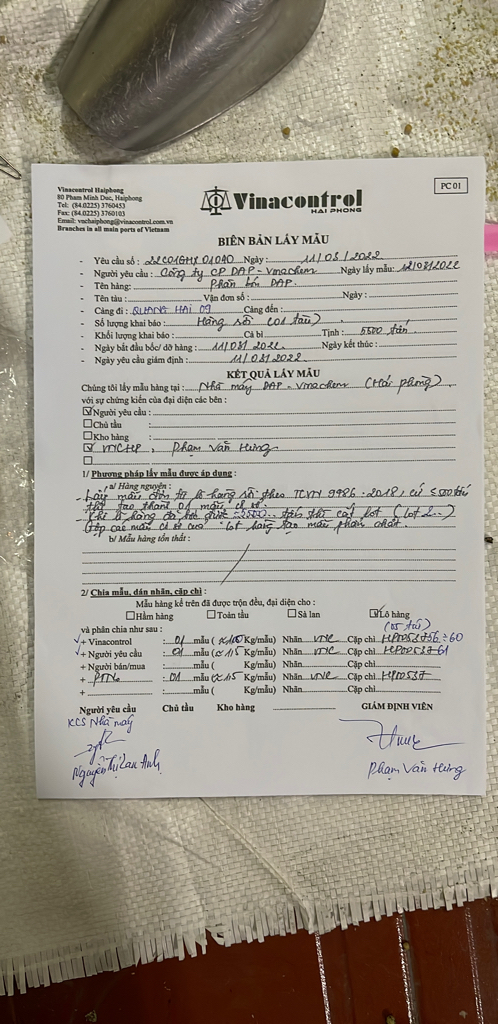 Vinacontrol Haiphong
80 Pham Minh Duc, Haiphong
Tel: (84.0225) 3760453
Fax: (84.0225) 3760103
Email: vnchaiphong@vinacontrol.com.vn
Branches in all main ports of Vietnam
Vinacontrol
HAI PHONG
PC 01
BIÊN BẢN LẤY MẪU
- Yêu cầu số : 22C01GHX 01040 Ngày : 11/08/2022
- Người yêu cầu : Công ty CP DAP - Vinachem Ngày lấy mẫu: 12/08/2022
- Tên hàng: Phân bón DAP.
- Tên tàu : Vận đơn số : Ngày :
- Cảng đi : QUANG HAI 09 Cảng đến :
- Số lượng khai báo : Hàng rời (01 tàu)
- Khối lượng khai báo : Cả bì Tịnh : 5500 tấn
- Ngày bắt đầu bốc/ dỡ hàng : 11/08/2022 Ngày kết thúc :
- Ngày yêu cầu giám định : 11/08/2022
KẾT QUẢ LẤY MẪU
Chúng tôi lấy mẫu hàng tại : Nhà máy DAP - Vinachem (Hải phòng)
với sự chứng kiến của đại diện các bên :
Người yêu cầu :
Chủ tàu :
Kho hàng :
VNCHP, Phạm Văn Hưng
1/ Phương pháp lấy mẫu được áp dụng :
a/ Hàng nguyên :
- Lấy mẫu đơn từ lô hàng rời theo TCVN 9486 : 2018, cứ ≤ 500 tấn
thì tạo thành 01 mẫu
- Khi lô hàng tấn thì cắt lot (lot 1...)
Gộp các mẫu lot hàng tạo mẫu phân chất.
b/ Mẫu hàng tổn thất :
2/ Chia mẫu, dán nhãn, cặp chì :
Mẫu hàng kể trên đã được trộn đều, đại diện cho :
Hầm hàng Toàn tàu Sà lan Lô hàng
và phân chia như sau :
+ Vinacontrol : 01 mẫu ( Kg/mẫu) Nhãn VNC Cặp chì
+ Người yêu cầu : 01 mẫu ( Kg/mẫu) Nhãn VNC Cặp chì
+ Người bán/mua : mẫu ( Kg/mẫu) Nhãn Cặp chì
+ PTN : 01 mẫu ( Kg/mẫu) Nhãn VNC Cặp chì
+ : mẫu ( Kg/mẫu) Nhãn Cặp chì
Người yêu cầu Chủ tàu Kho hàng GIÁM ĐỊNH VIÊN
KCS Nhà máy
Nguyễn Thị Lan Anh
Phạm Văn Hưng